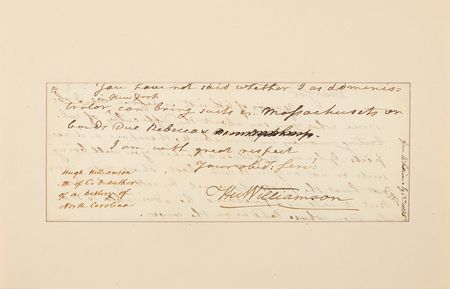 You have not said whether I as adminis=
in New York
trator, can bring suits in Massachusets on
bonds Due Rebecca
I am with great respect
Your obed. Servt
Hu Williamson
Hugh Williamson
M of C & author
of a History of
North Carolina